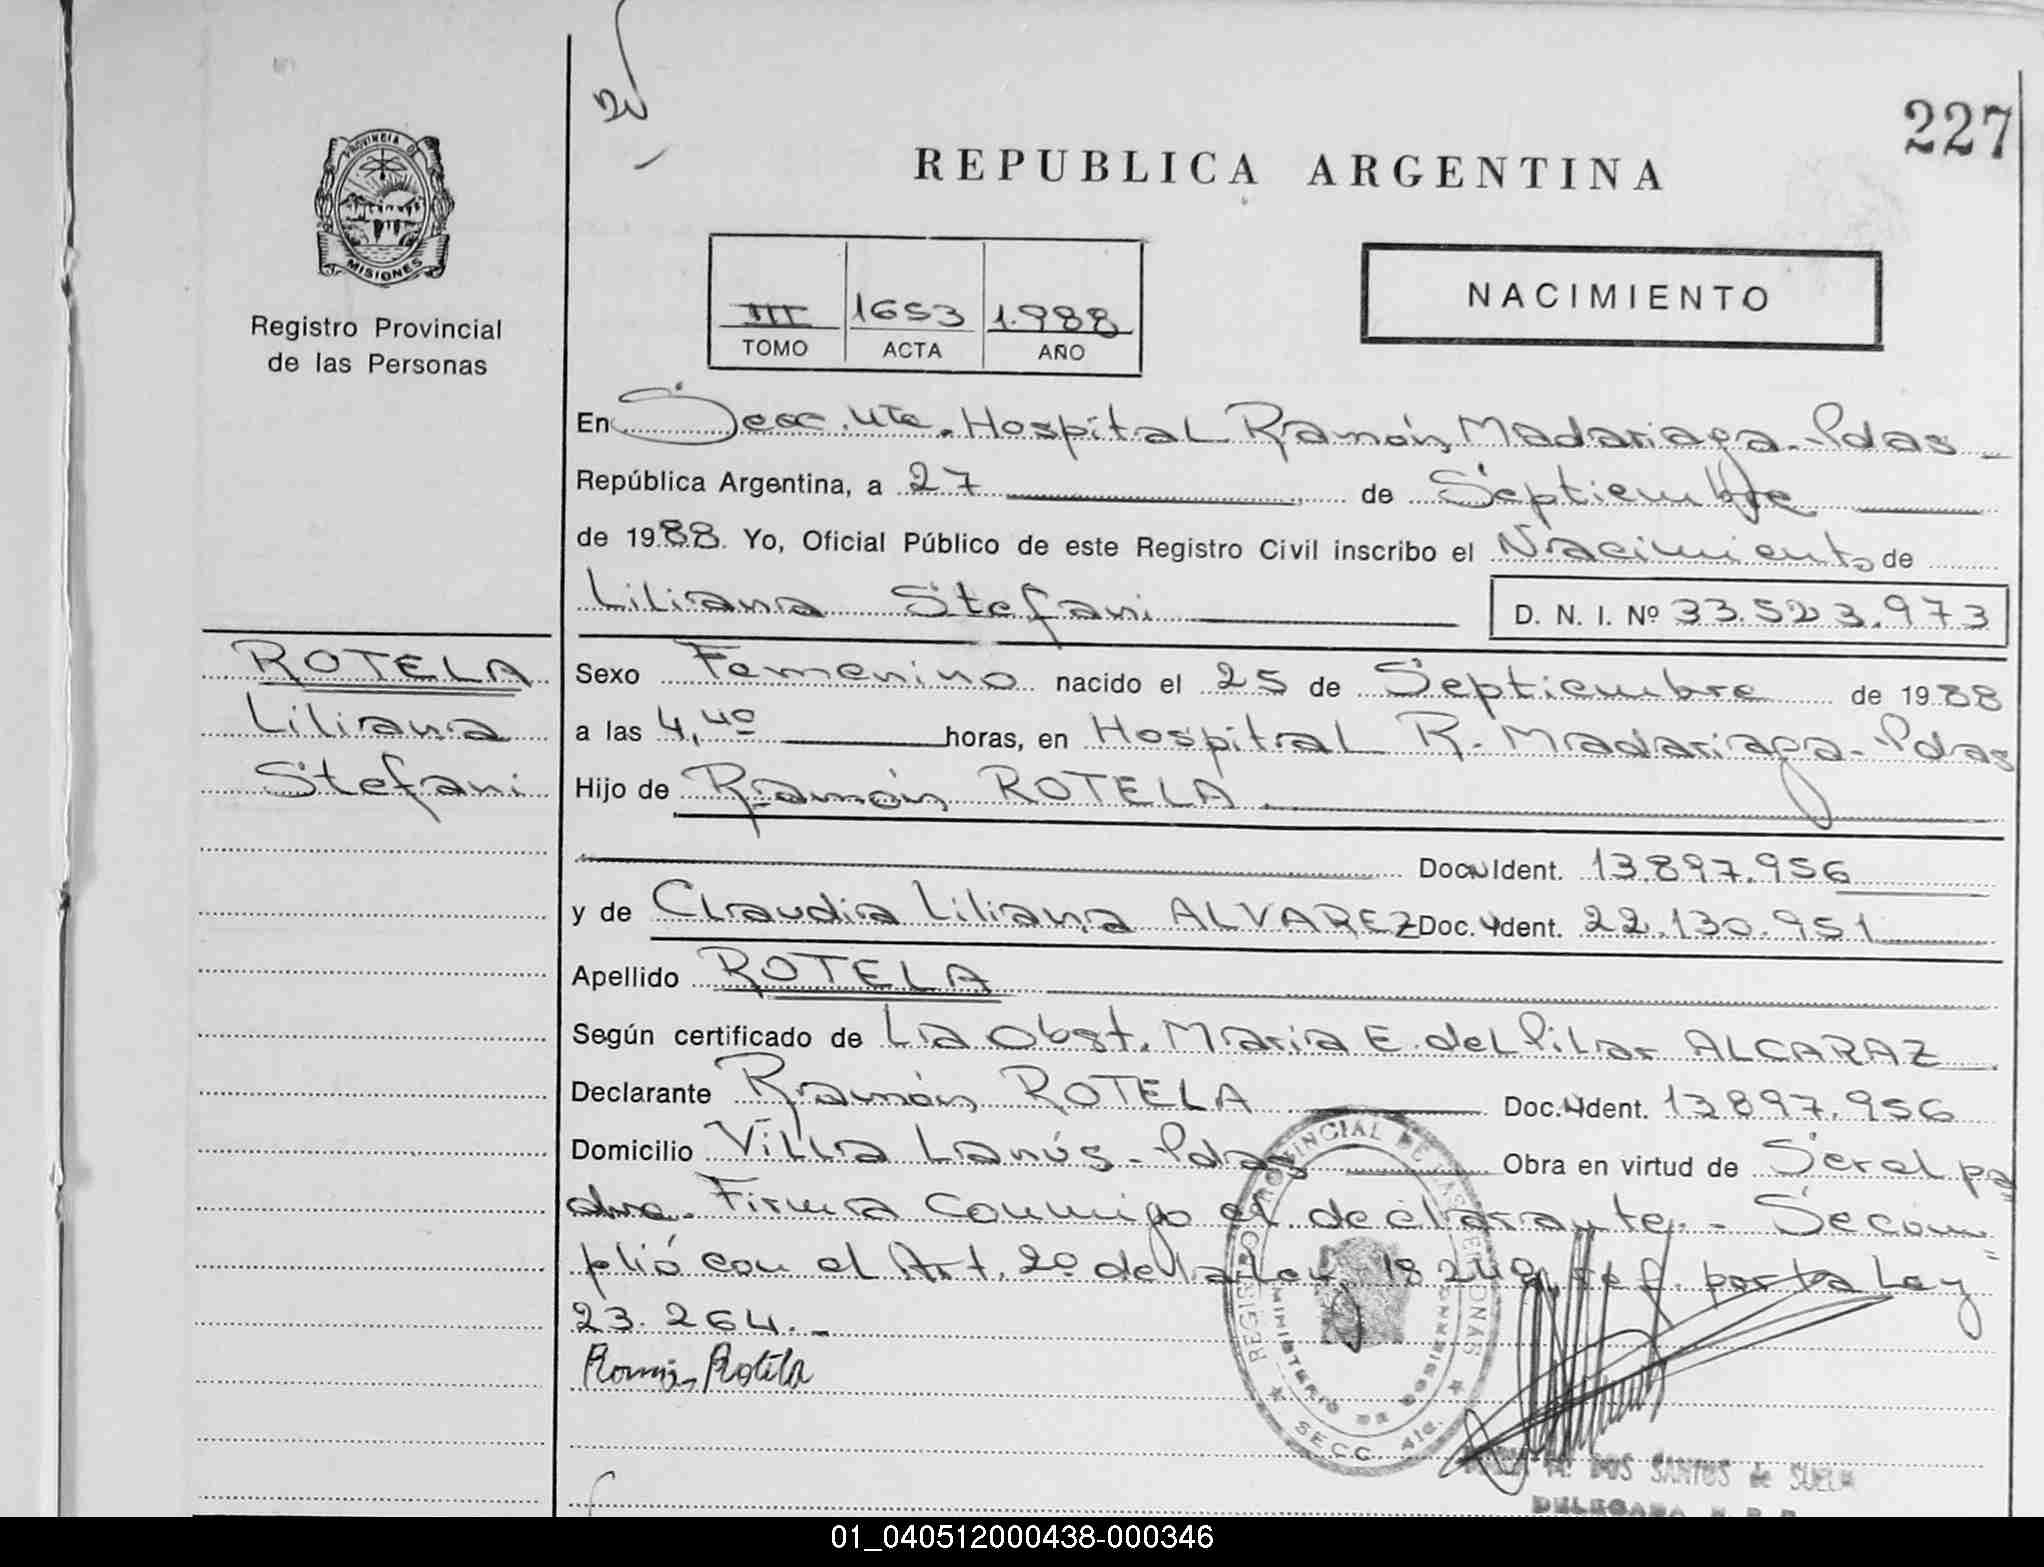 227
PROVINCIA DE
MISIONES
Registro Provincial
de las Personas
REPUBLICA ARGENTINA
III 1653 1.988
TOMO ACTA AÑO
NACIMIENTO
En Secc. 4ta. Hospital Ramón Madariaga - Pdas
República Argentina, a 27 de Septiembre
de 1988 Yo, Oficial Público de este Registro Civil inscribo el Nacimiento de
Liliana Stefani D. N. I. Nº 33.523.973
ROTELA
Liliana
Stefani
Sexo Femenino nacido el 25 de Septiembre de 1988
a las 4,40 horas, en Hospital R. Madariaga - Pdas
Hijo de Ramón ROTELA
Doc. Ident. 13.897.956
y de Claudia Liliana ALVAREZ Doc. Ident. 22.130.951
Apellido ROTELA
Según certificado de La Obst. Maria E. del Pilar ALCARAZ
Declarante Ramón ROTELA Doc. Ident. 13897.956
Domicilio Villa Lanús - Pdas Obra en virtud de Ser el pa-
dre. Firma conmigo el declarante. - Se cum=
plió con el Art. 2º de la Ley 18 248 ref. por la Ley
23.264.-
Ramón Rotela
REGISTRO PROVINCIAL DE LAS PERSONAS
MINISTERIO DE GOBIERNO
SECC. 4ta.
DOS SANTOS de SUELA
DELEGADA R. P. P.
01_040512000438-000346